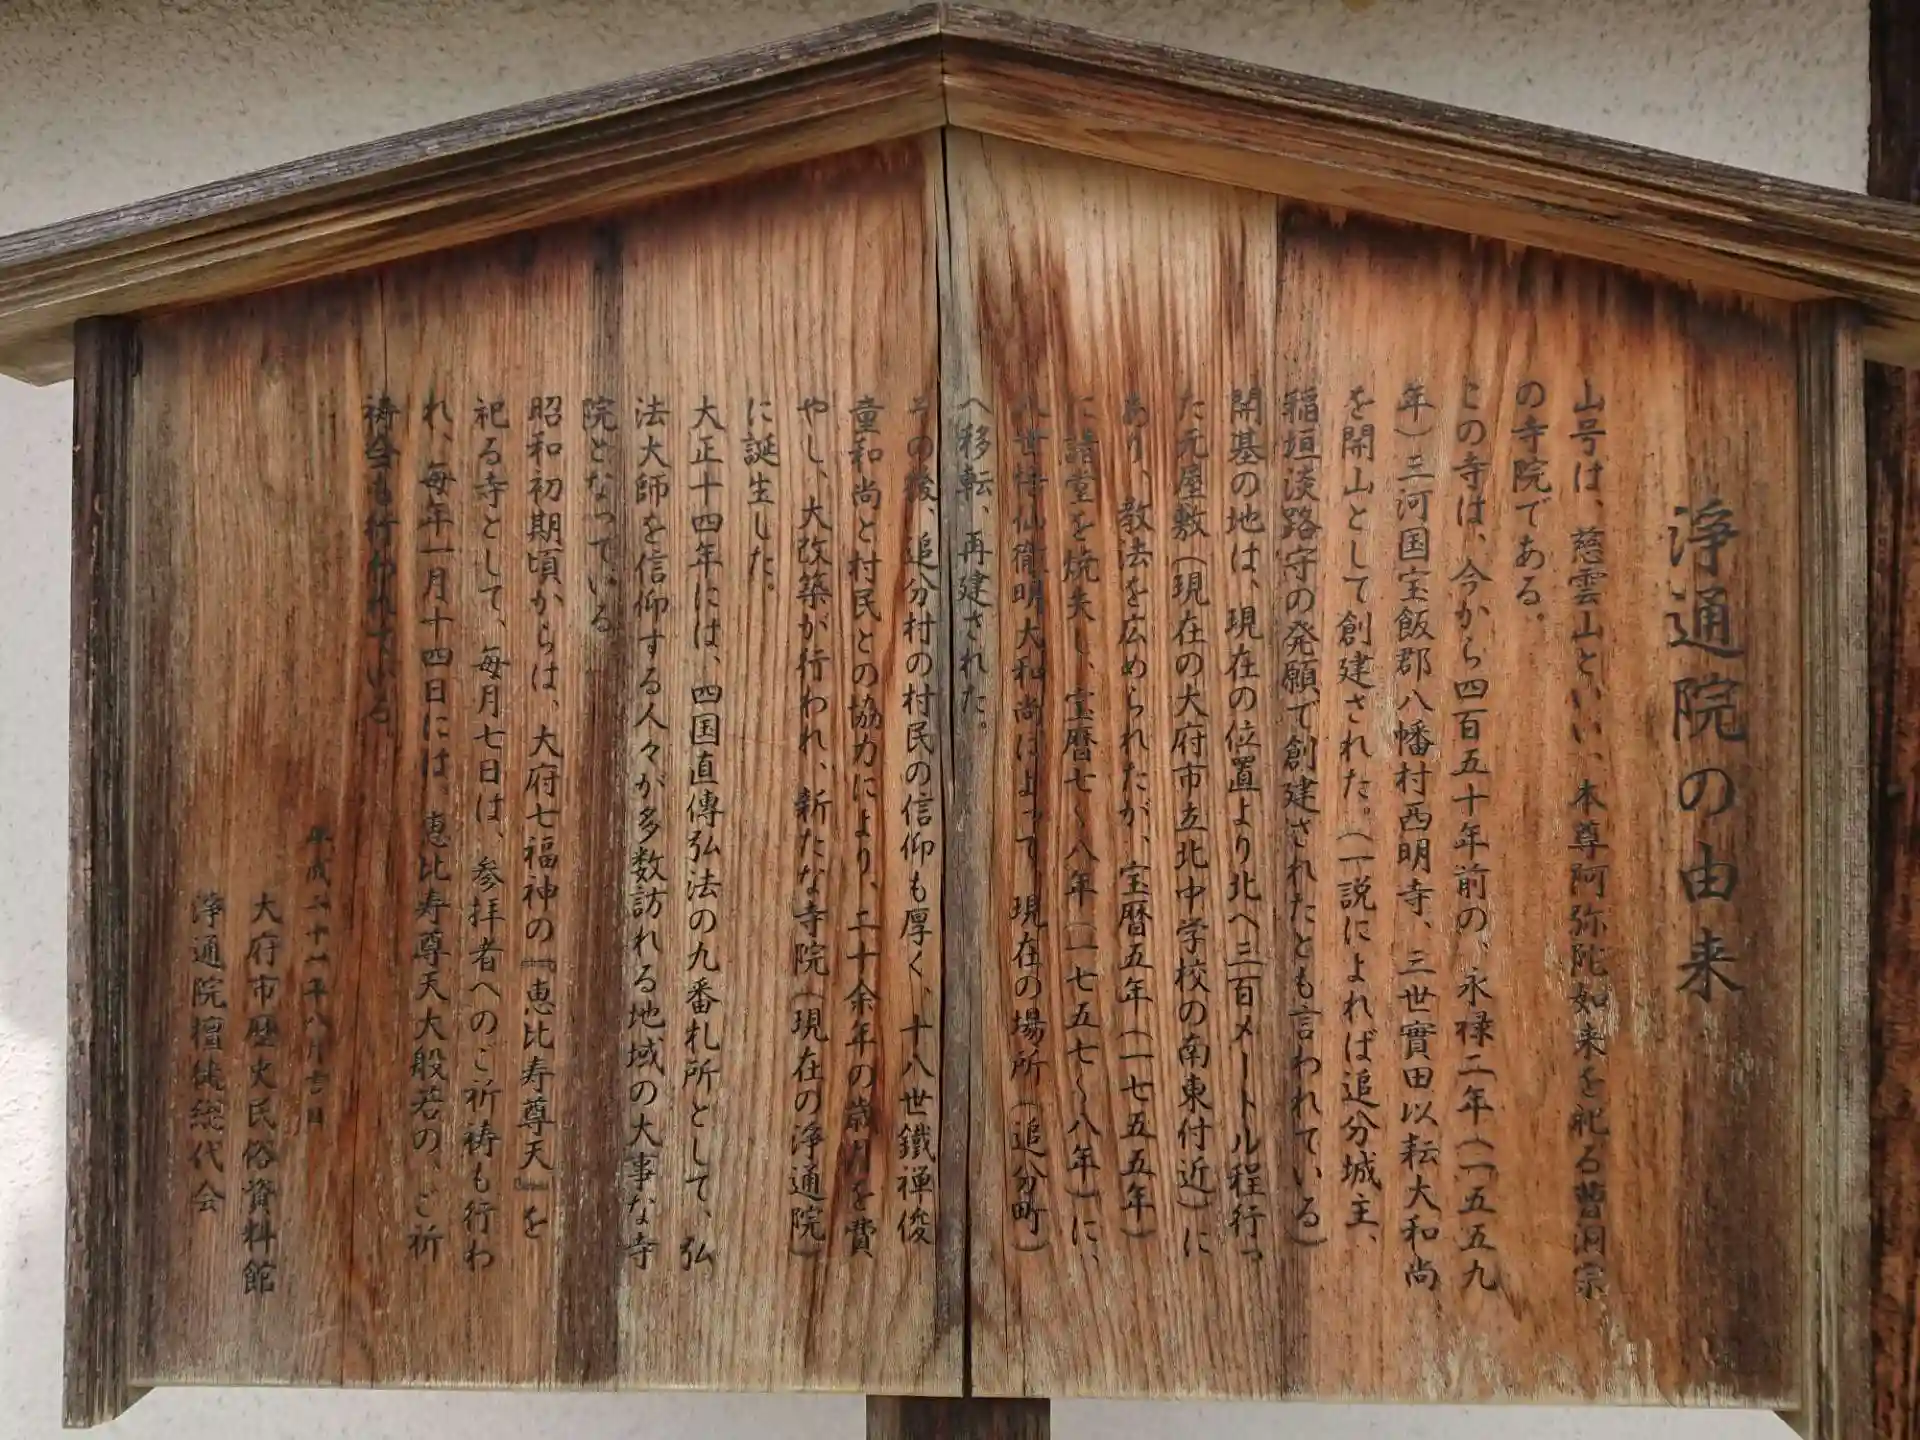 浄通院の由来
山号は、慈雲山といい、本尊阿弥陀如来を祀る曹洞宗
の寺院である。
この寺は、今から四百五十年前の、永禄二年(一五五九
年)三河国宝飯郡八幡村西明寺、三世實田以耘大和尚
を開山として創建された。(一説によれば追分城主、
稲垣淡路守の発願で創建されたとも言われている)
開基の地は、現在の位置より北へ三百メートル程行っ
た元屋敷(現在の大府市立北中学校の南東付近)に
あり、教法を広められたが、宝暦五年(一七五五年)
に諸堂を焼失し、宝暦七〜八年(一七五七〜八年)に、
八世悟仙衛明大和尚によって、現在の場所(追分町)
へ移転、再建された。
その後、追分村の村民の信仰も厚く、十八世鐵禅俊
童和尚と村民との協力により、二十余年の歳月を費
やし、大改築が行われ、新たな寺院(現在の浄通院)
に誕生した。
大正十四年には、四国直傳弘法の九番札所として、弘
法大師を信仰する人々が多数訪れる地域の大事な寺
院となっている。
昭和初期頃からは、大府七福神の『恵比寿尊天』を
祀る寺として、毎月七日は、参拝者へのご祈祷も行わ
れ、毎年一月十四日には、恵比寿尊天大般若の、ご祈
祷会も行われている。
平成二十一年八月吉日
大府市歴史民俗資料館
浄通院檀徒総代会